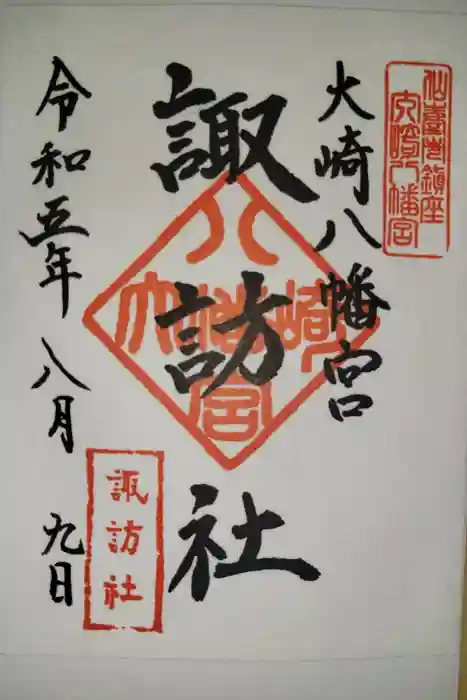 仙臺總鎮座
大崎八幡宮
大崎八幡宮
諏訪社
大崎八幡宮
諏訪社
令和五年八月九日